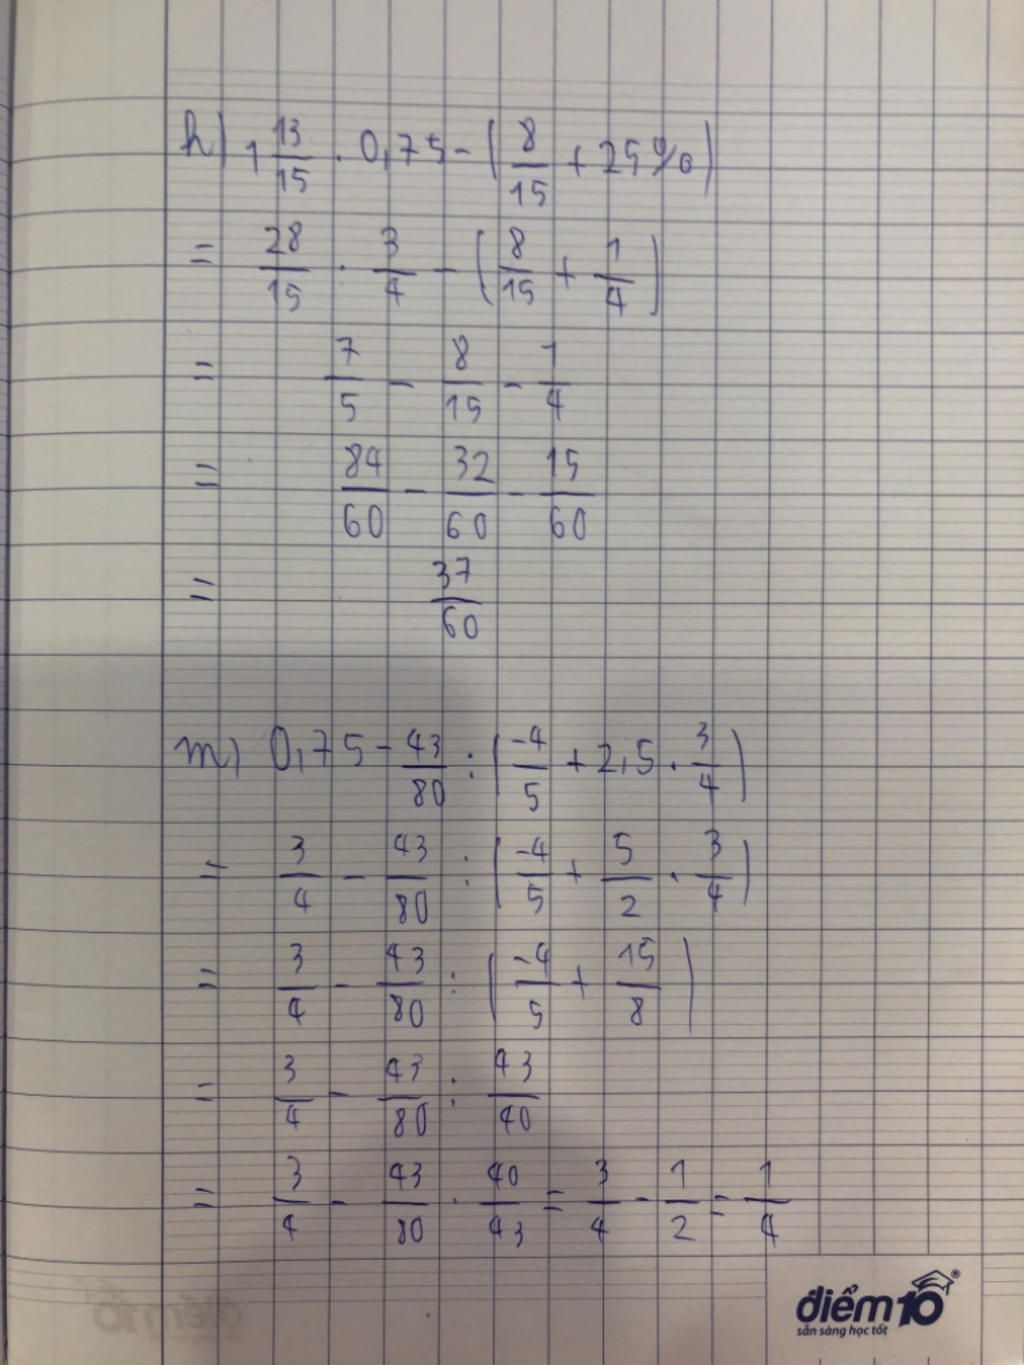 h) 1 13/15 . 0,75 - (8/15 + 25%)
= 28/15 . 3/4 - (8/15 + 1/4)
= 7/5 - 8/15 - 1/4
= 84/60 - 32/60 - 15/60
= 37/60
m) 0,75 - 43/80 : (-4/5 + 2,5 . 3/4)
= 3/4 - 43/80 : (-4/5 + 5/2 . 3/4)
= 3/4 - 43/80 : (-4/5 + 15/8)
= 3/4 - 43/80 : 43/40
= 3/4 - 43/80 . 40/43 = 3/4 - 1/2 = 1/4
điểm10®
sẵn sàng học tốt